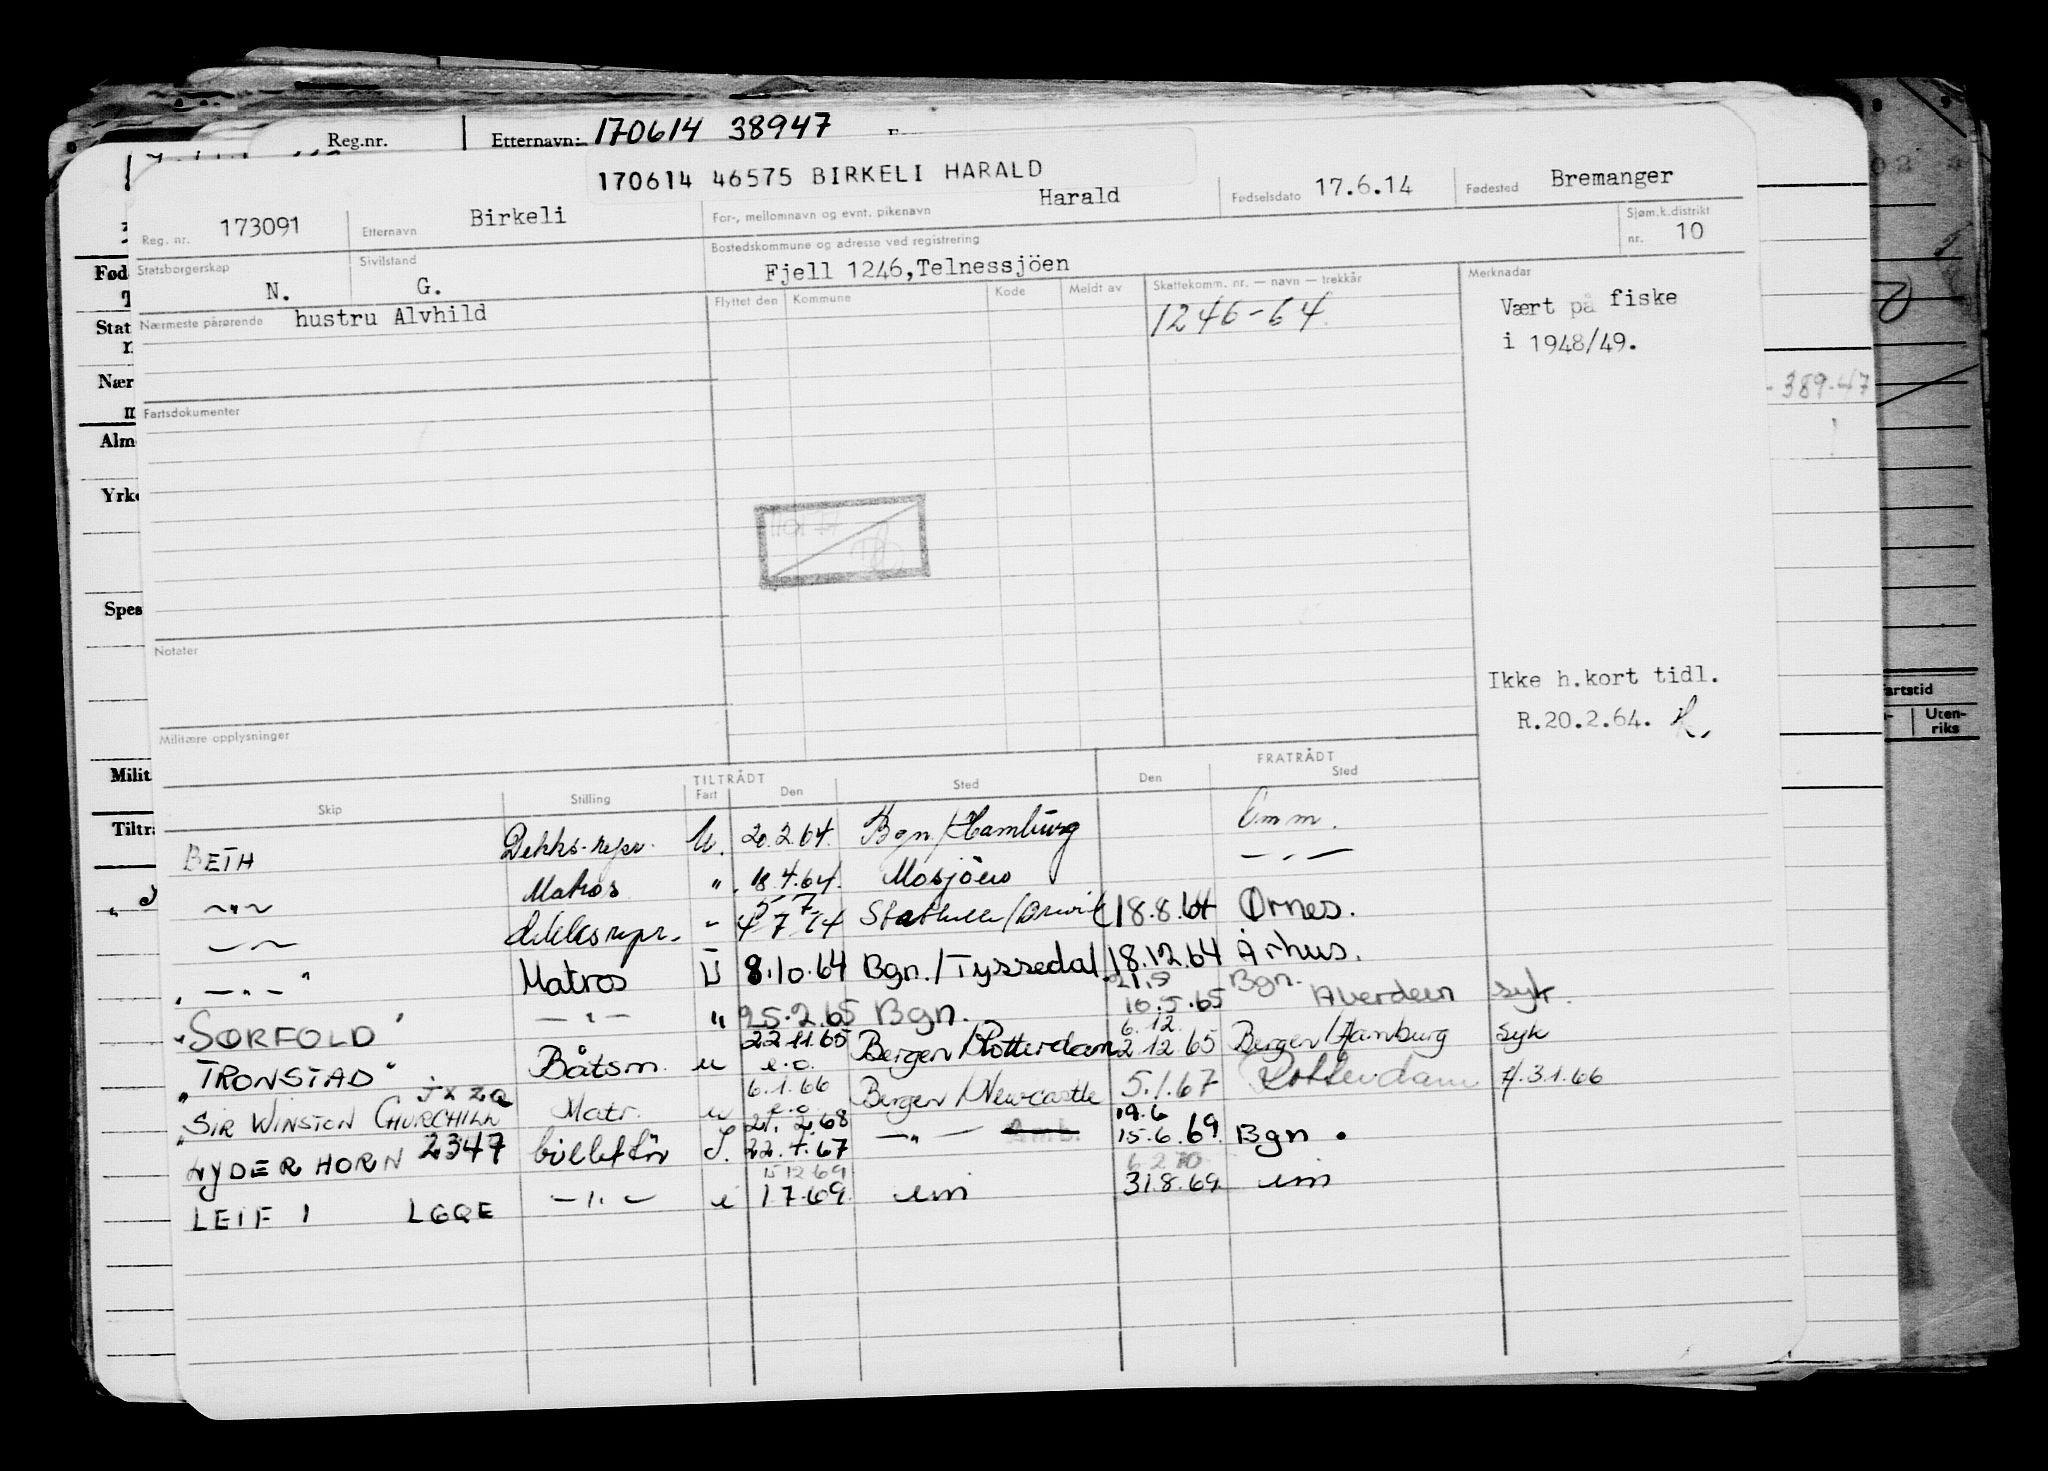 Reg.nr. Etternavn: 170614 38947
170614 46575 BIRKELI HARALD
Reg. nr. 173091 Etternavn Birkeli For-, mellomnavn og evnt. pikenavn Harald Fødselsdato 17.6.14 Fødested Bremanger
Statsborgerskap N. Sivilstand G. Bostedskommune og adresse ved registrering Fjell 1246,Telnessjöen Sjøm.k.distrikt nr. 10
Nærmeste pårørende hustru Alvhild Flyttet den Kommune Kode Meldt av Skattekomm. nr. — navn — trekkår Merknader
1246-64
Vært på fiske
i 1948/49.
389.47
Fartsdokumenter
Notater
Ikke h.kort tidl.
R.20.2.64.
Militære opplysninger
TILTRÅDT FRATRÅDT
Skip Stilling Fart Den Sted Den Sted
BETH Dekks.repr. U. 20.2.64. Bgn./Hamburg Omm.
-"- Matros ". 18.4.64. Mosjöen -"-
5 7
-"- dekksrepr. " 4 7 64 18.8.64 Ørnes.
" -"- " Matros U 8.10.64 Bgn./Tyssedal 18.12.64 Århus.
21.5 Bgn.
"SØRFOLD" -"- " 25.2.65 Bgn. 10.5.65 Averdeen syk.
22.11.65 6.12.
"TRONSTAD" Båtsm. u e.o. Bergen/Rotterdam 2 12 65 Bergen/Hamburg syk
JXZQ 6.1.66
"SIR WINSTON CHURCHILL Matr. u e.o Bergen/Newcastle 5.1.67 Rotterdam 3.1.66
21.2.68 19.6
LYDERHORN 2347 billettör S. 22.7.67 -"- 15.6.69 Bgn.
15 12 69 6 2 70
LEIF 1 LGQE -"- i 1 7.69 um 31.8.69 um
Uten-
riks